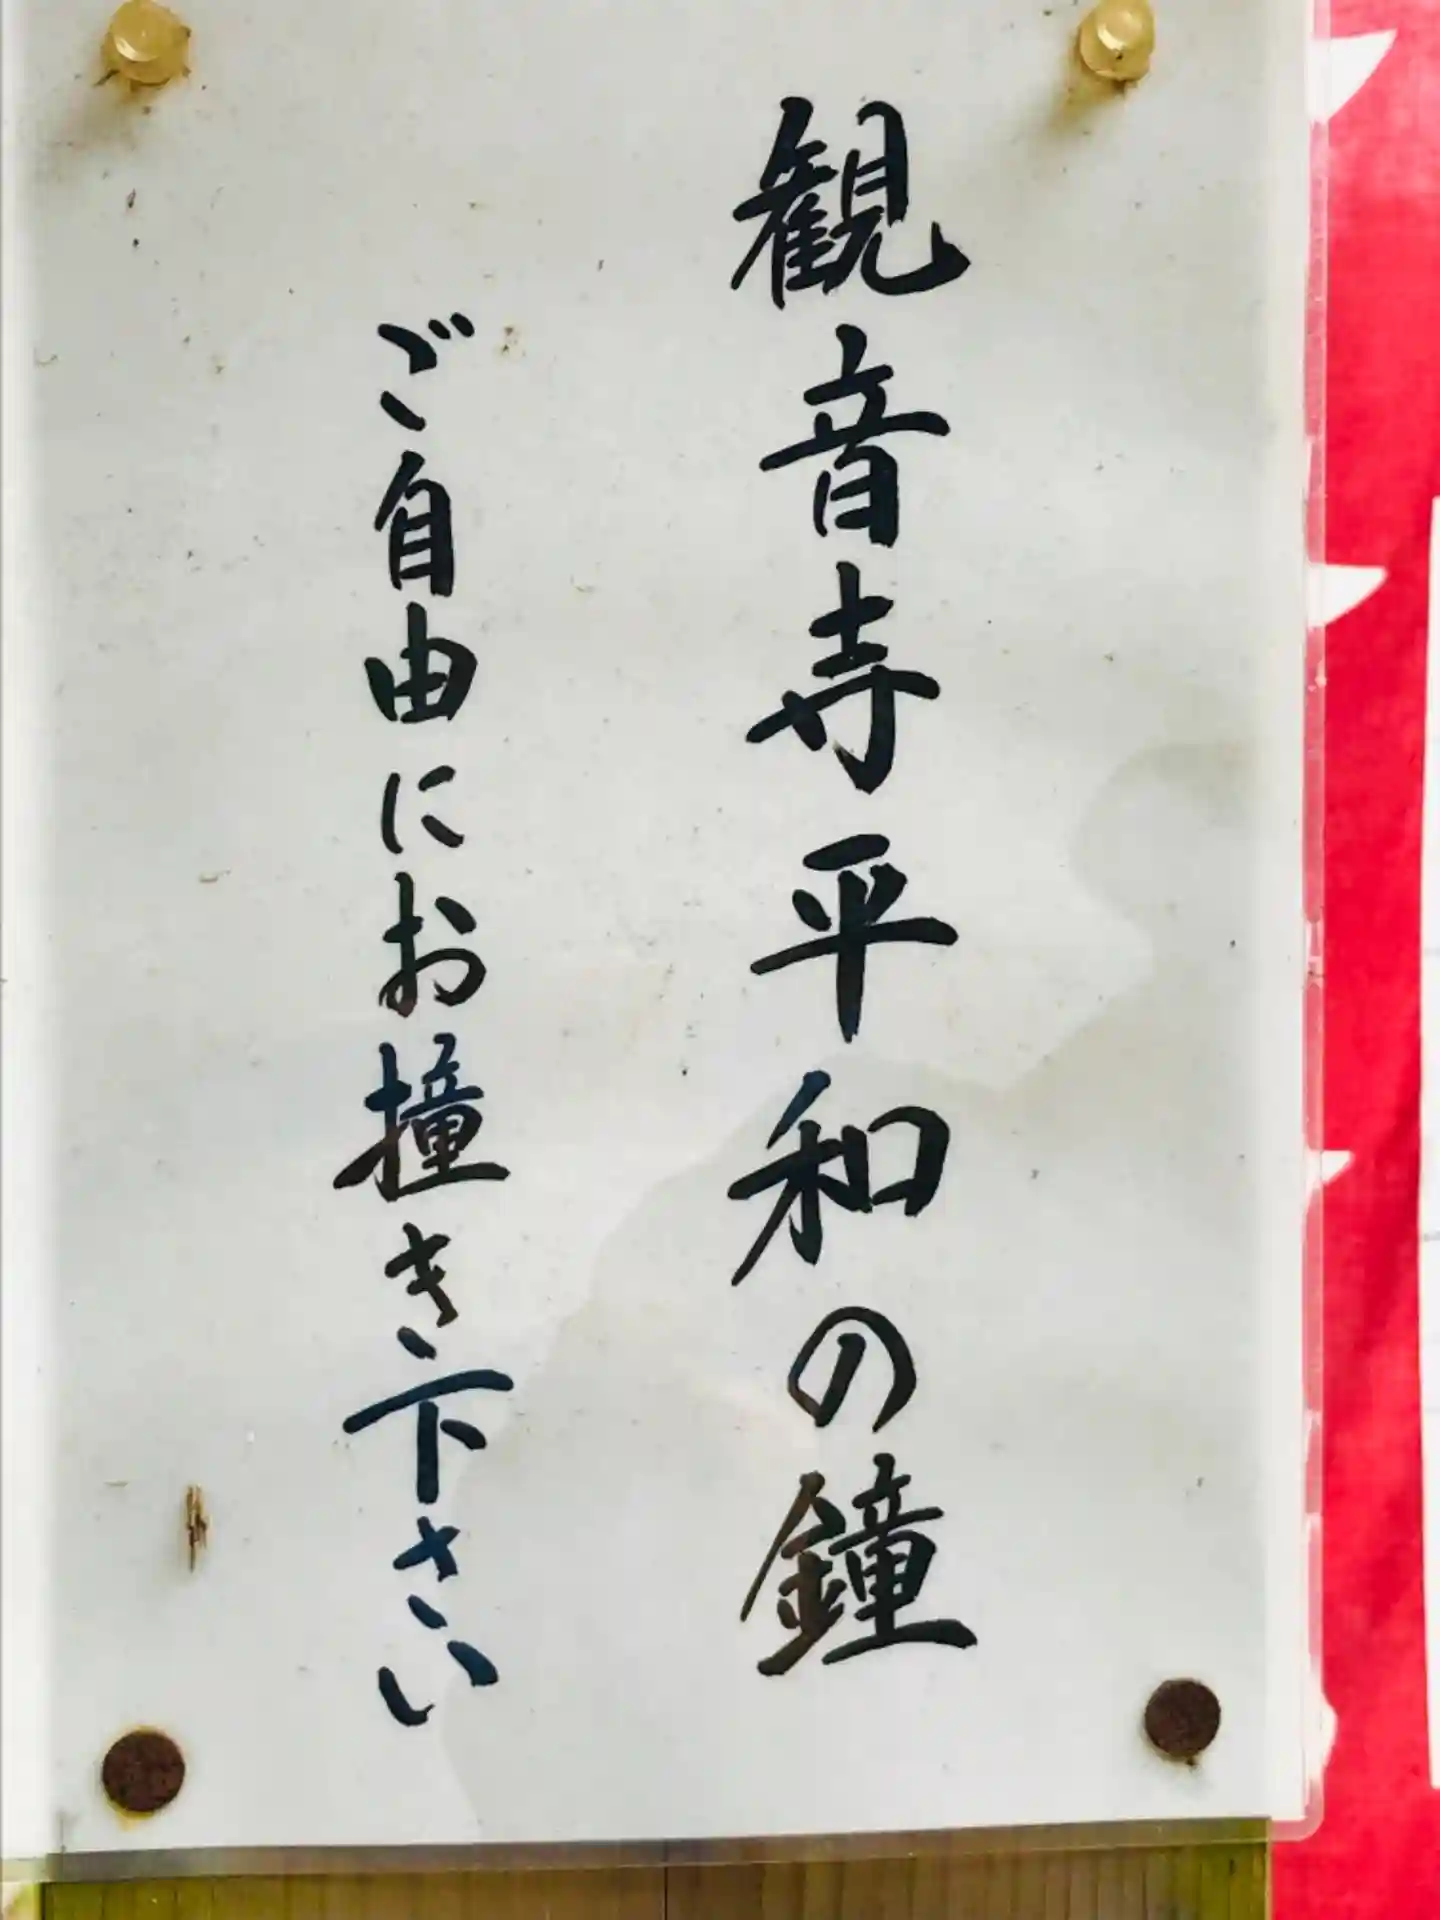 観音寺平和の鐘
ご自由にお撞き下さい